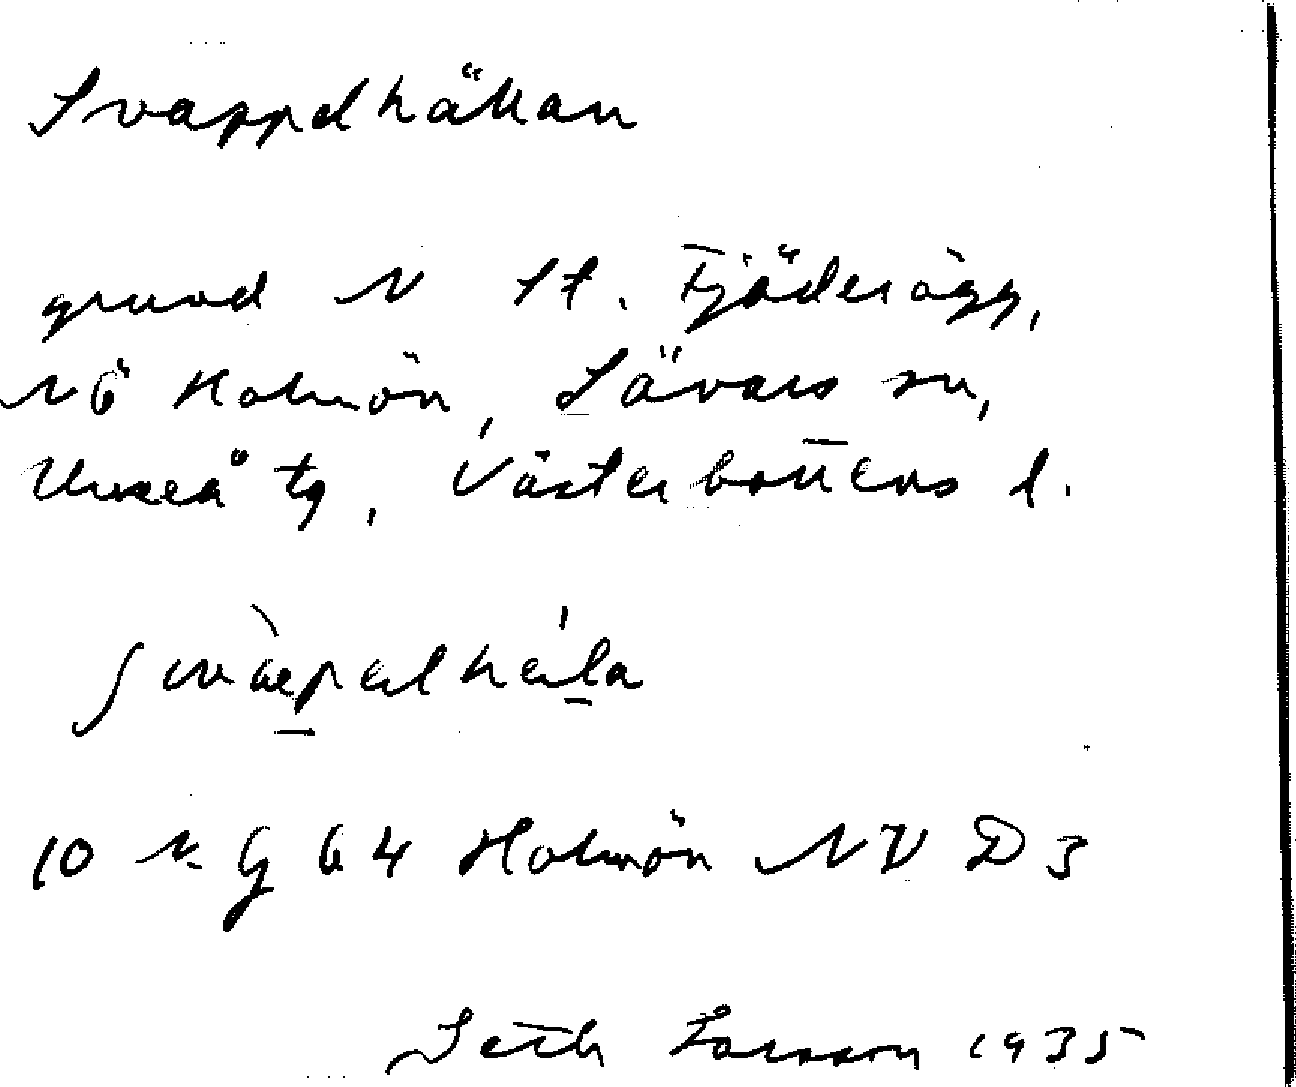 Svappelhällan
grund N St. Fjäderägg,
NÖ Holmön, Sävars sn,
Umeå tg, Västerbottens l.
10 N. G 64 Holmön NV D3
Seth Larsson 1935